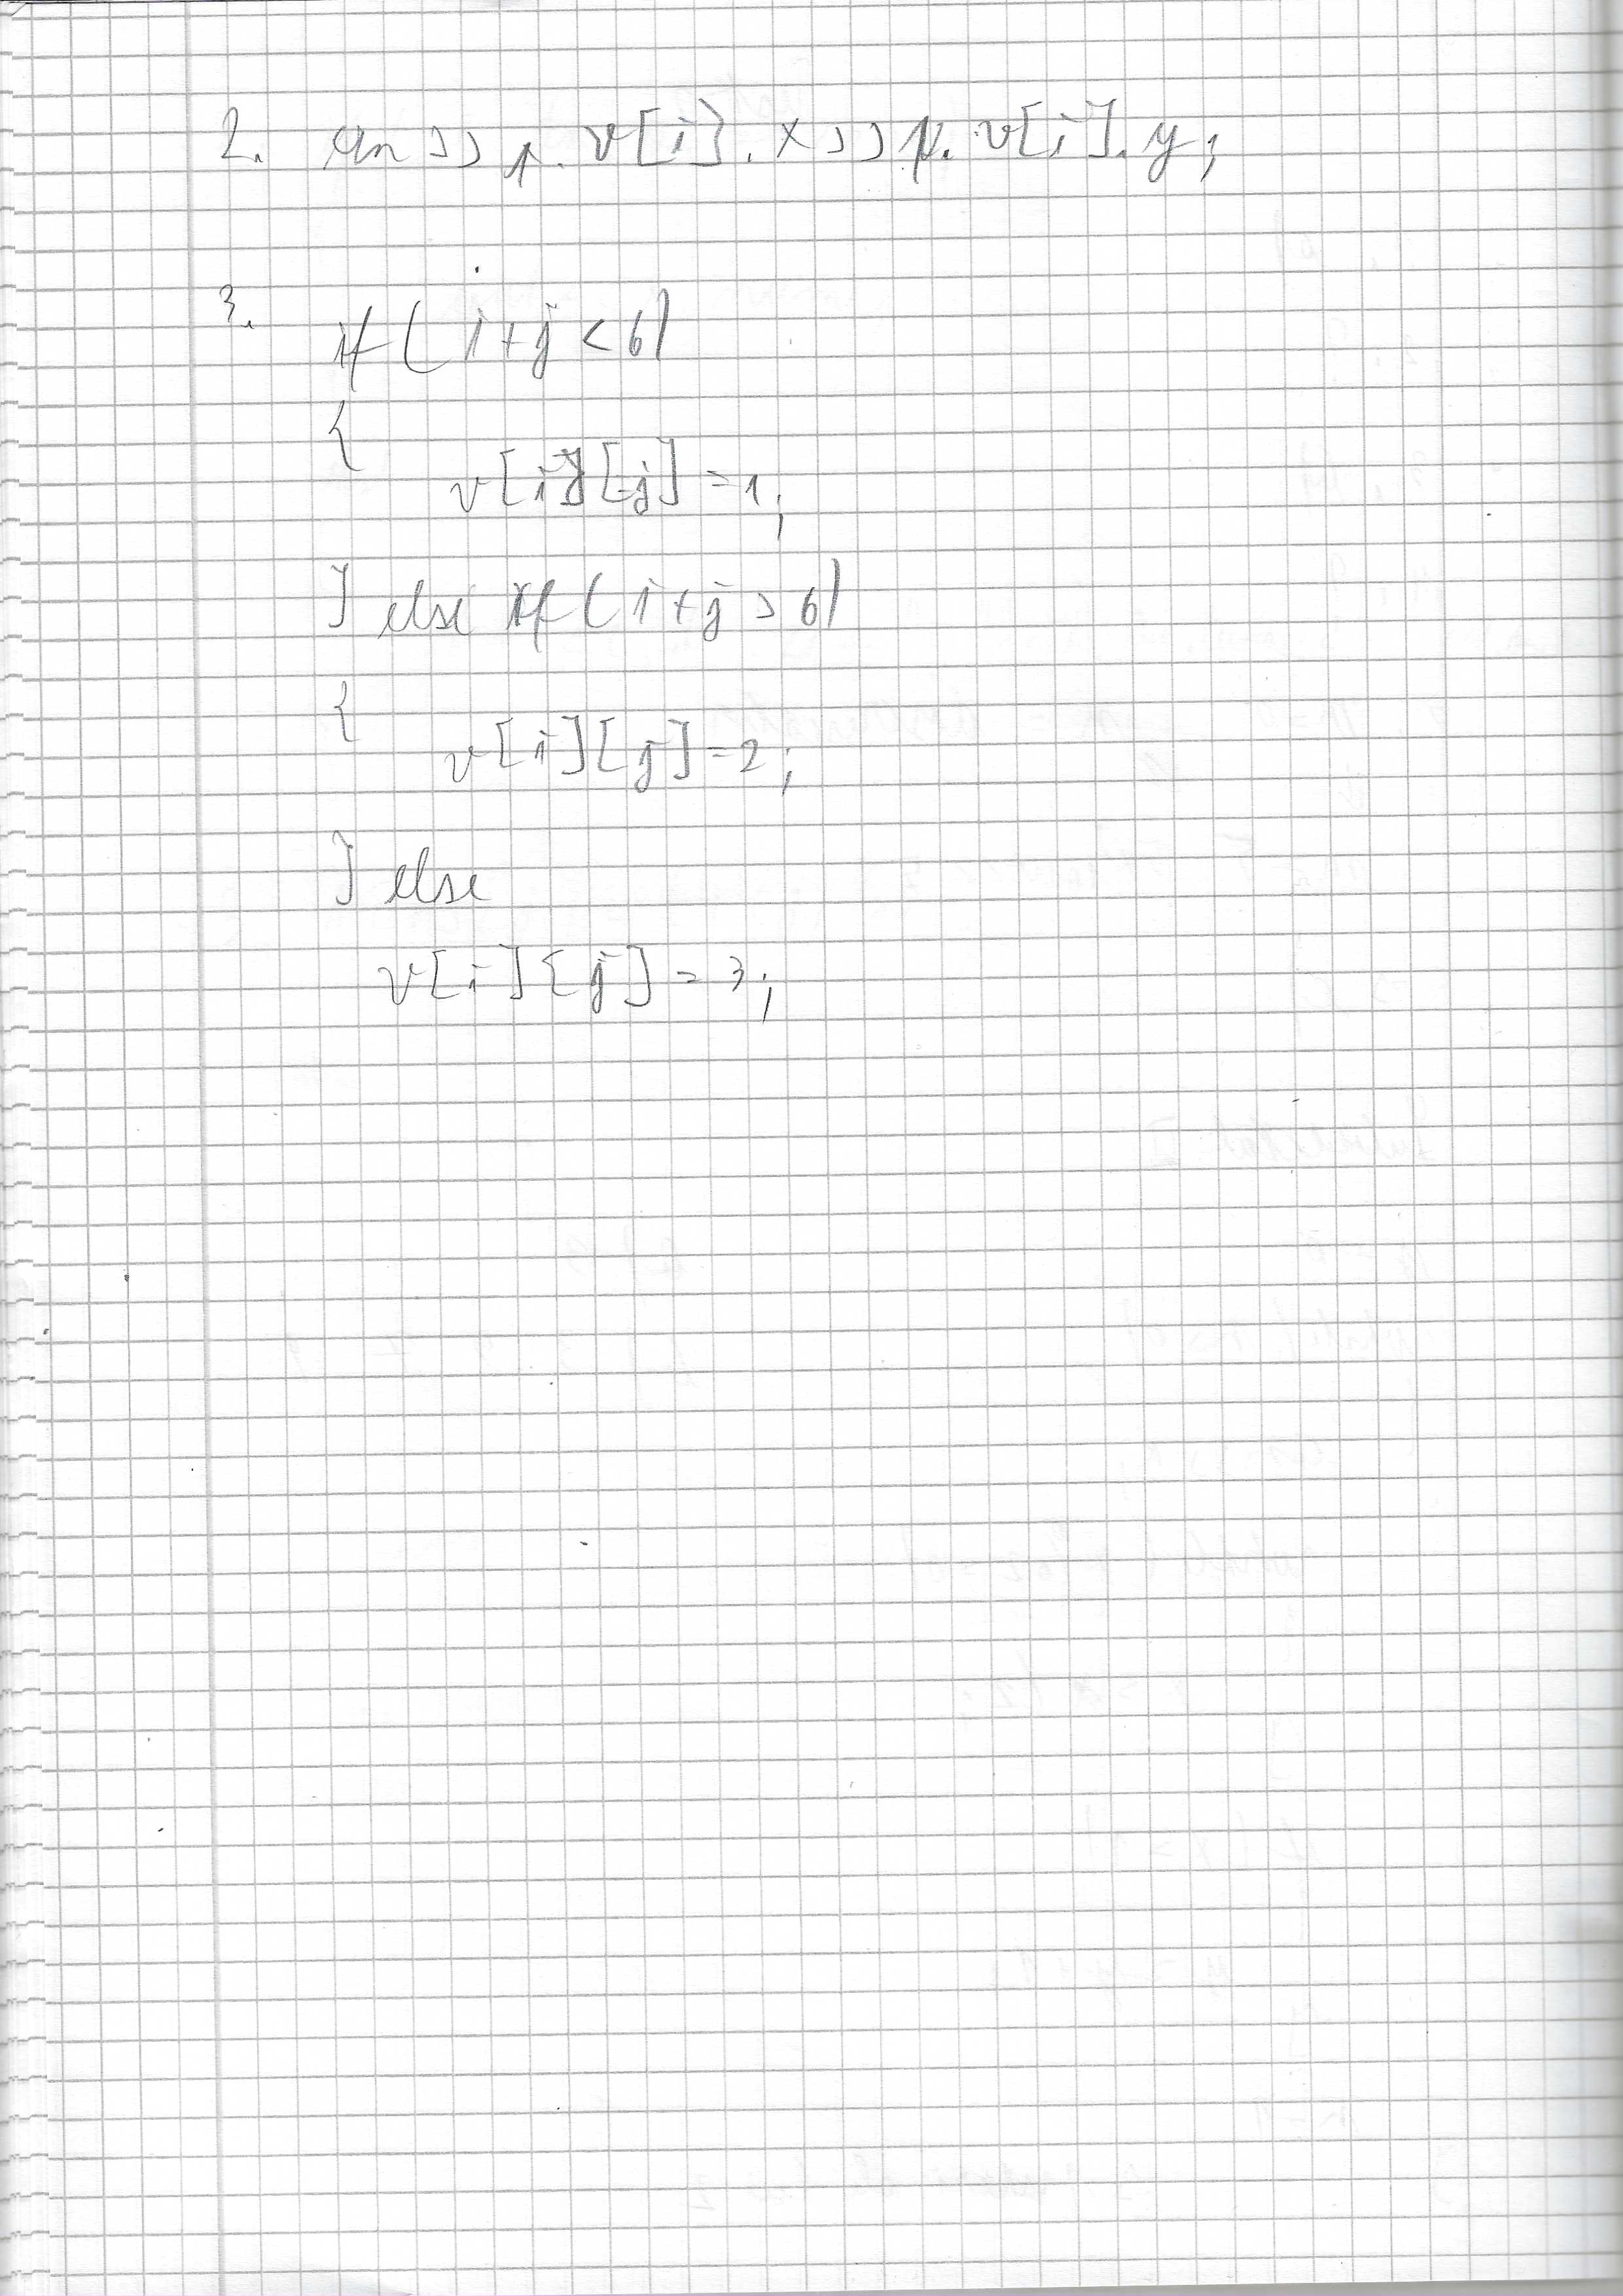 2. cin >> p.v[i].x >> p.v[i].y;
3.
if (i+j < 6)
{
v[i][j] = 1;
} else if (i+j > 6)
{
v[i][j] = 2;
} else
v[i][j] = 3;